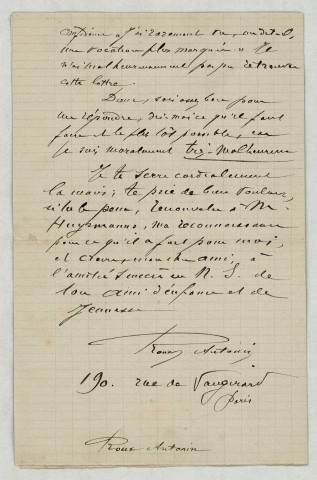 confrère « J'ai rarement vu, me dit-il,
une vocation plus marquée » Je
n'ai malheureusement pas pu retrouver
cette lettre.
Donc, sois assez bon pour
me répondre, dis-moi ce qu'il faut
faire et le plus tôt possible, car
je suis moralement très-malheureux
Je te serre cordialement
la main; te prie de bien vouloir,
si tu le peux, renouveler à Mr
Huysmans, ma reconnaissance
pour ce qu'il a fait pour moi,
et crois, mon cher ami, à
l'amitié sincère en N. S. de
ton ami d'enfance et de
jeunesse
Roux Antonin
190. rue de Vaugirard
Paris
Roux Antonin